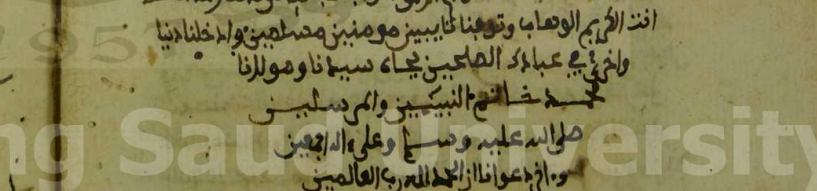 انت الكريم الوهاب وتوفنا تايبين مومنين مسلمين وادخلنا دنيا
واخرى في عبادك الصلحين بجاه سيدنا ومولانا
محمد خاتم النبيين والمرسلين
صلى الله عليه وسلم وعلى ءاله اجمعين
وءاخر دعوانا ان الحمد لله رب العالمين
ng Saud University
1957